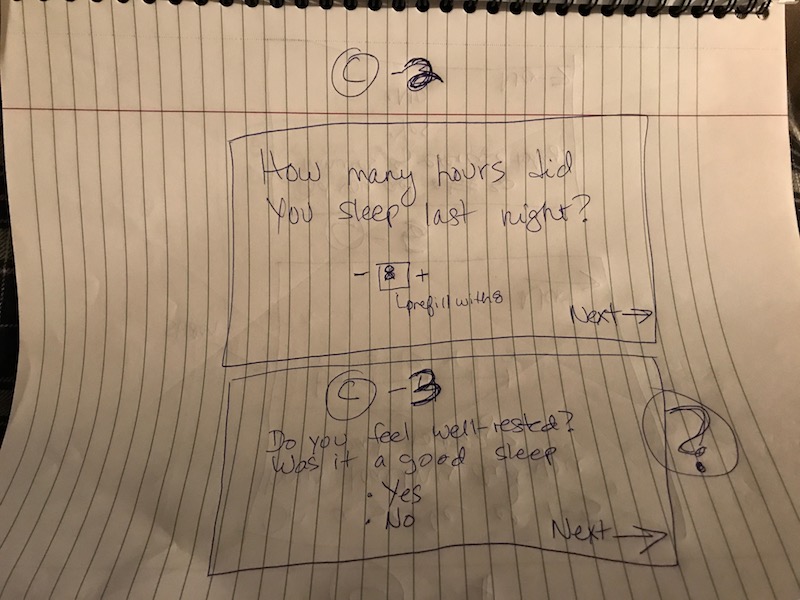 C - 2
How many hours did
you sleep last night?
- 8 +
prefill with 8
Next →
C - 3
Do you feel well-rested?
Was it a good sleep
?
• Yes
• No
Next →